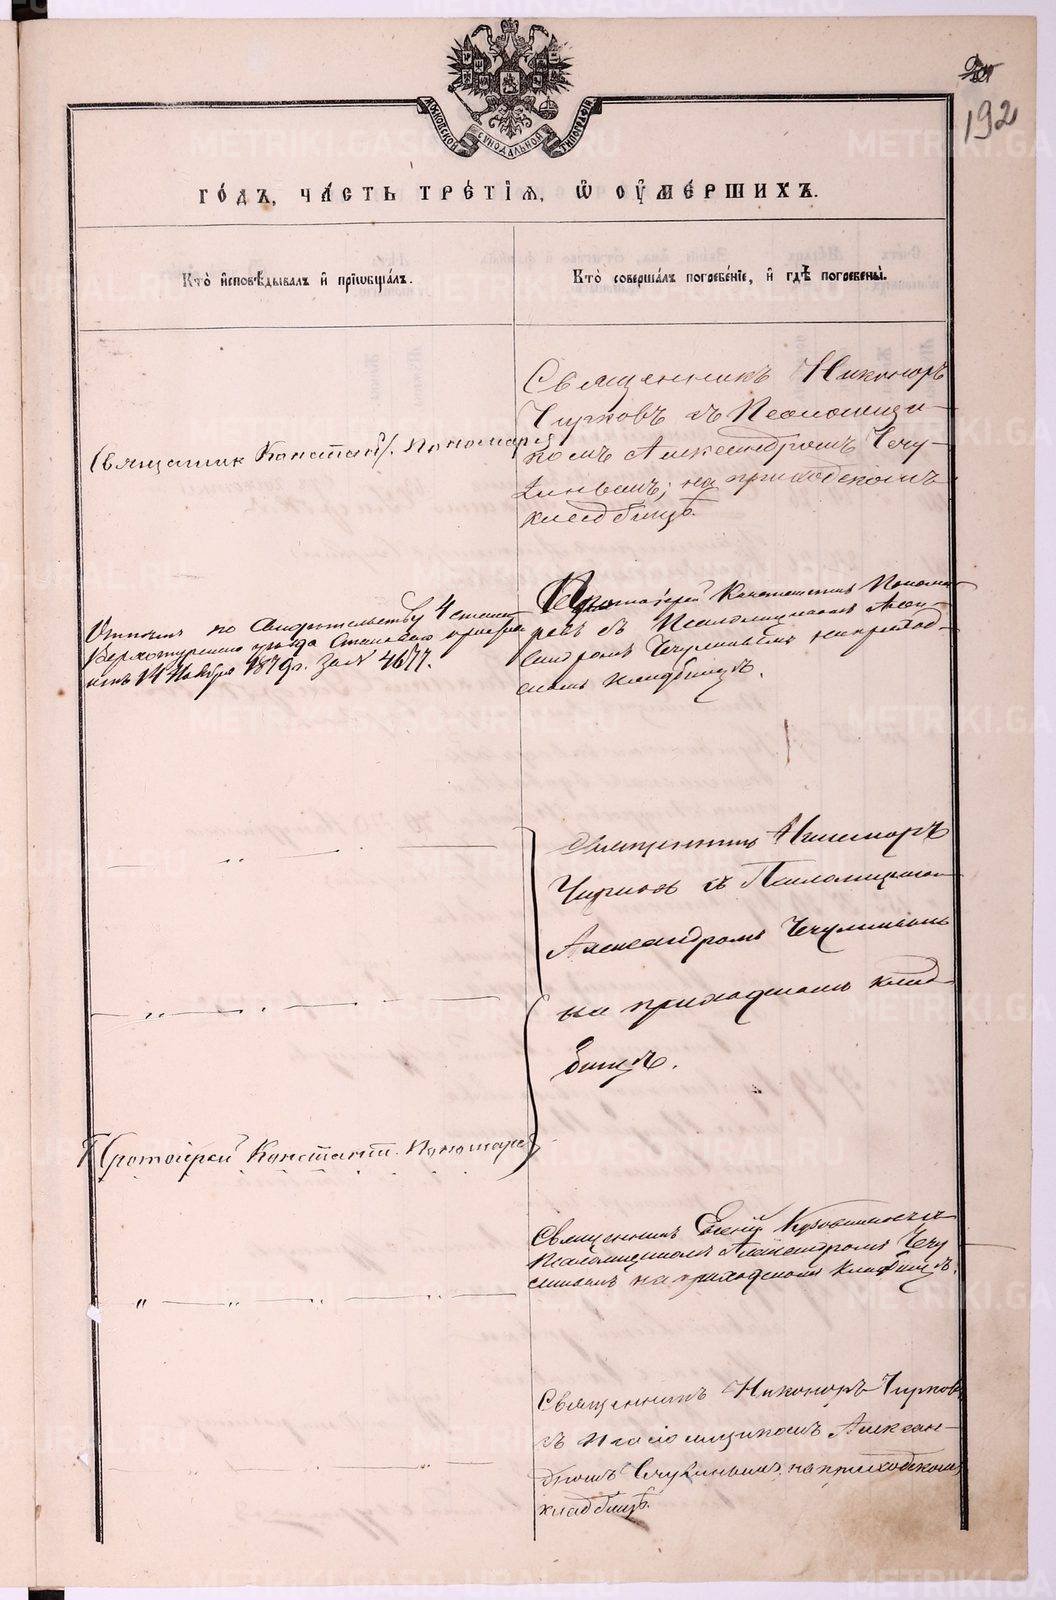 192
МОСКОВСКОЙ СУНОДАЛЬНОЙ ТИПОГРАФІИ
ГО́ДЪ, ЧА́СТЬ ТРЕ́ТІѦ, Ѡ҆ ОУ҆МЕ́РШИХЪ.
Кто̀ и҆сповѣ́дывалъ и҆ пріѡбща́лъ.
Кто̀ соверша́лъ погребе́ніе, и҆ гдѣ̀ погребены̀.
Священникъ Никоноръ
Чирковъ съ Псаломщи-
комъ Александромъ Чечу-
линымъ; на приходскомъ
кладбищѣ.
Священник Констант. Пономарев
по Свидетельству 4 стана
Верхотурскаго уѣзда Становаго пристава
14 Ноября 1879 г. за № 4677.
Протоіерей Константинъ Понома-
ревъ съ Псаломщикомъ Алек-
сандромъ Чечулинымъ на приход-
скомъ кладбищѣ.
Священникъ Никоноръ
Чирковъ съ Псаломщикомъ
Александромъ Чечулинымъ
на приходскомъ клад-
бищѣ.
Протоіерей Констант. Пономарев
Священникъ Евгеній съ
Псаломщикомъ Александромъ Чечу
линымъ на приходскомъ кладбищѣ.
Священникъ Никоноръ Чирковъ
съ Псаломщикомъ Алексан-
дромъ Чечулинымъ, на приходскомъ
кладбищѣ.
METRIKI.GASO-URAL.RU